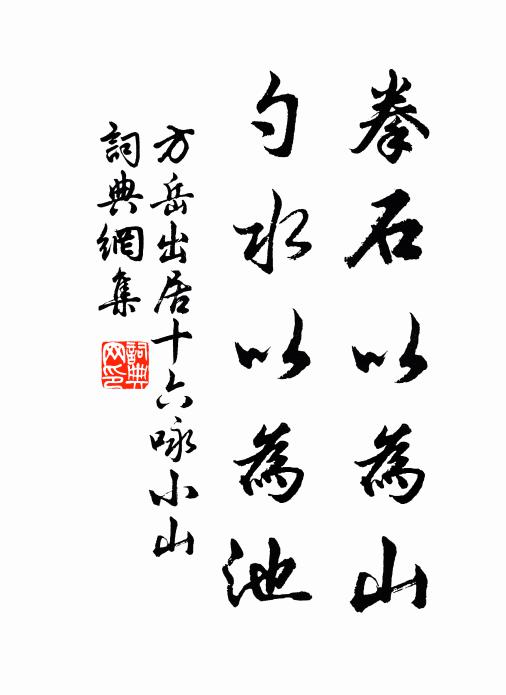 拳石以為山
勺水以為池
方岳出居十六咏小山
詞典網集
詞典網印